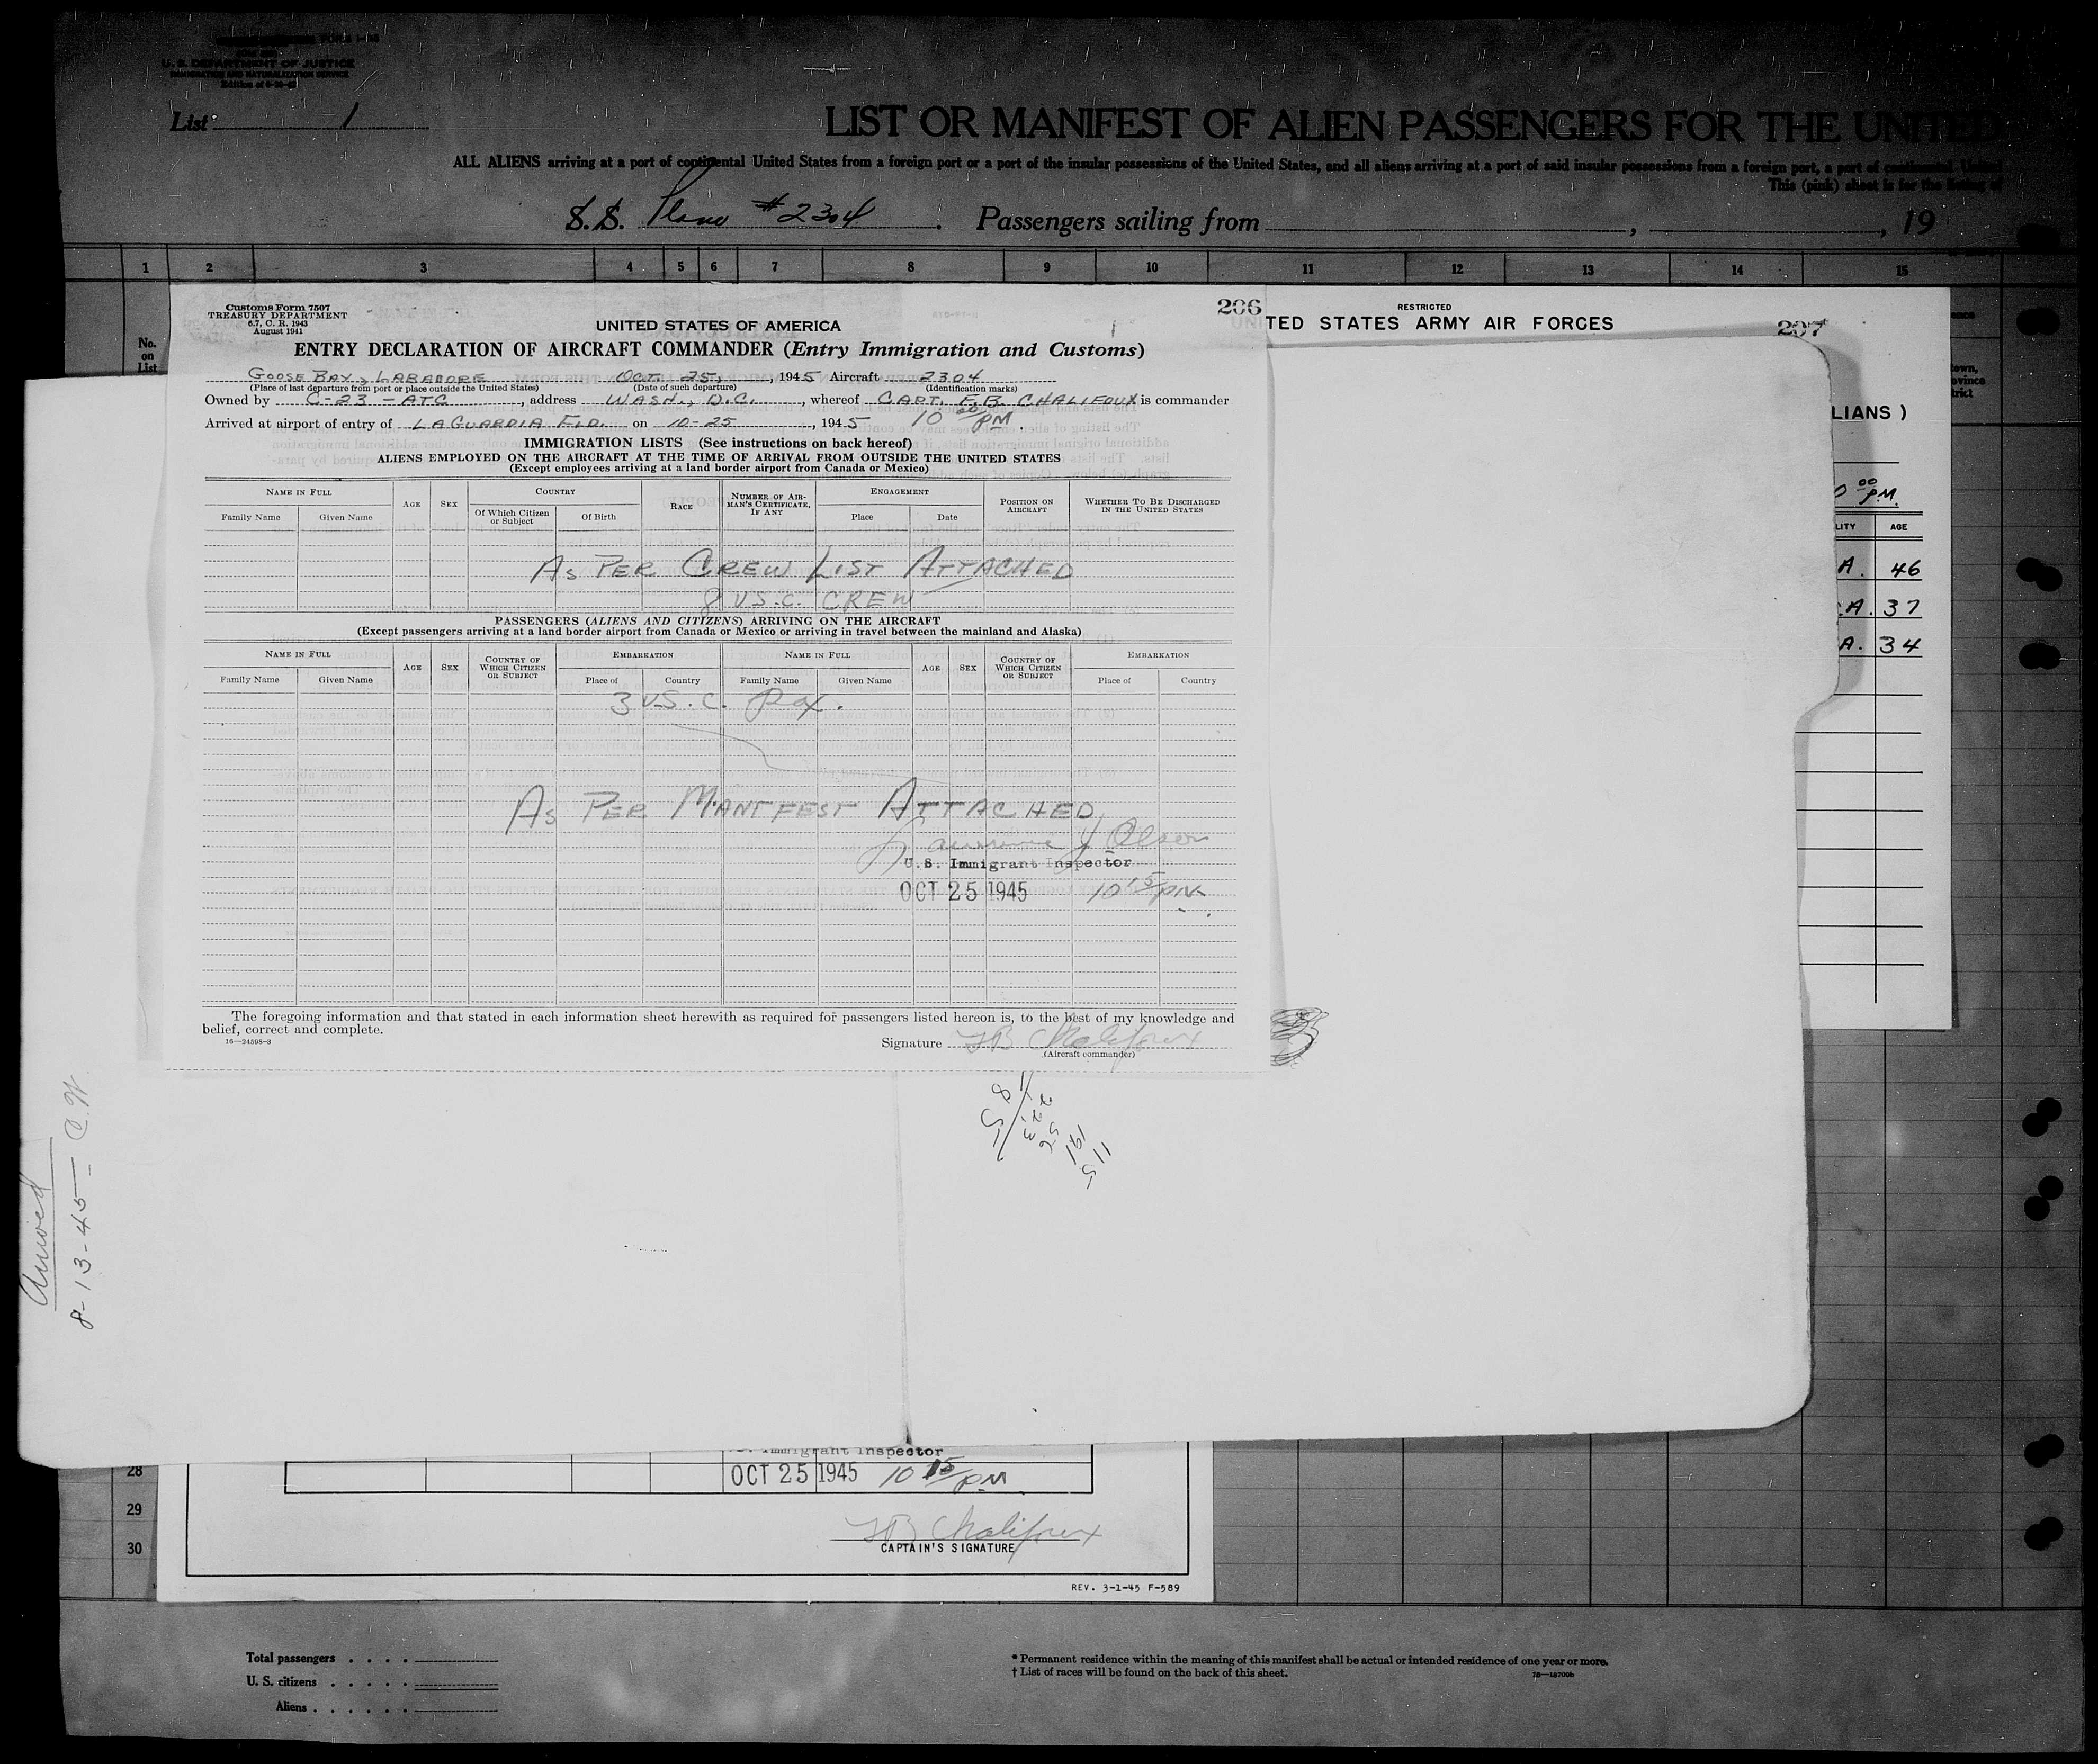 U. S. DEPARTMENT OF JUSTICE
IMMIGRATION AND NATURALIZATION SERVICE
List 1
LIST OR MANIFEST OF ALIEN PASSENGERS FOR THE UNITED
ALL ALIENS arriving at a port of continental United States from a foreign port or a port of the insular possessions of the United States, and all aliens arriving at a port of said insular possessions from a foreign port, a port of continental
This (pink) sheet is for the listing of
S.S. Plane #2304. Passengers sailing from , , 19
1 2 3 4 5 6 7 8 9 10 11 12 13 14 15
No. on List
Customs Form 7507
TREASURY DEPARTMENT
6.7, C. R. 1943
August 1941
206
UNITED STATES OF AMERICA
ENTRY DECLARATION OF AIRCRAFT COMMANDER (Entry Immigration and Customs)
GOOSE BAY, LABADORE OCT. 25, , 1945 Aircraft 2304
(Place of last departure from port or place outside the United States) (Date of such departure) (Identification marks)
Owned by C-23 - ATC , address WASH., D.C. , whereof CAPT. F.B. CHALIFOUX is commander
Arrived at airport of entry of LAGUARDIA FLD. on 10-25 , 1945 10 00 PM.
IMMIGRATION LISTS (See instructions on back hereof)
ALIENS EMPLOYED ON THE AIRCRAFT AT THE TIME OF ARRIVAL FROM OUTSIDE THE UNITED STATES
(Except employees arriving at a land border airport from Canada or Mexico)
NAME IN FULL AGE SEX COUNTRY RACE NUMBER OF AIRMAN'S CERTIFICATE, IF ANY ENGAGEMENT POSITION ON AIRCRAFT WHETHER TO BE DISCHARGED IN THE UNITED STATES
Family Name Given Name Of Which Citizen or Subject Of Birth Place Date
AS PER CREW LIST ATTACHED
8 U.S.C. CREW
PASSENGERS (ALIENS AND CITIZENS) ARRIVING ON THE AIRCRAFT
(Except passengers arriving at a land border airport from Canada or Mexico or arriving in travel between the mainland and Alaska)
NAME IN FULL AGE SEX COUNTRY OF WHICH CITIZEN OR SUBJECT EMBARKATION NAME IN FULL AGE SEX COUNTRY OF WHICH CITIZEN OR SUBJECT EMBARKATION
Family Name Given Name Place of Country Family Name Given Name Place of Country
3 U.S.C. Pax.
AS PER MANIFEST ATTACHED
Lawrence J Olson
U.S. Immigrant Inspector
OCT 25 1945 10 15 PM.
The foregoing information and that stated in each information sheet herewith as required for passengers listed hereon is, to the best of my knowledge and
belief, correct and complete.
16—24598-3
Signature FB Chalifoux
(Aircraft commander)
RESTRICTED
UNITED STATES ARMY AIR FORCES
207
LIANS )
0 00 PM.
LITY AGE
A. 46
A. 37
A. 34
8-13-45 — C.W.
Immigrant Inspector
28 OCT 25 1945 10 15 PM
29
30
FB Chalifoux
CAPTAIN'S SIGNATURE
REV. 3-1-45 F-589
Total passengers . . . .
U. S. citizens . . . . .
Aliens . . . . . .
* Permanent residence within the meaning of this manifest shall be actual or intended residence of one year or more.
† List of races will be found on the back of this sheet.